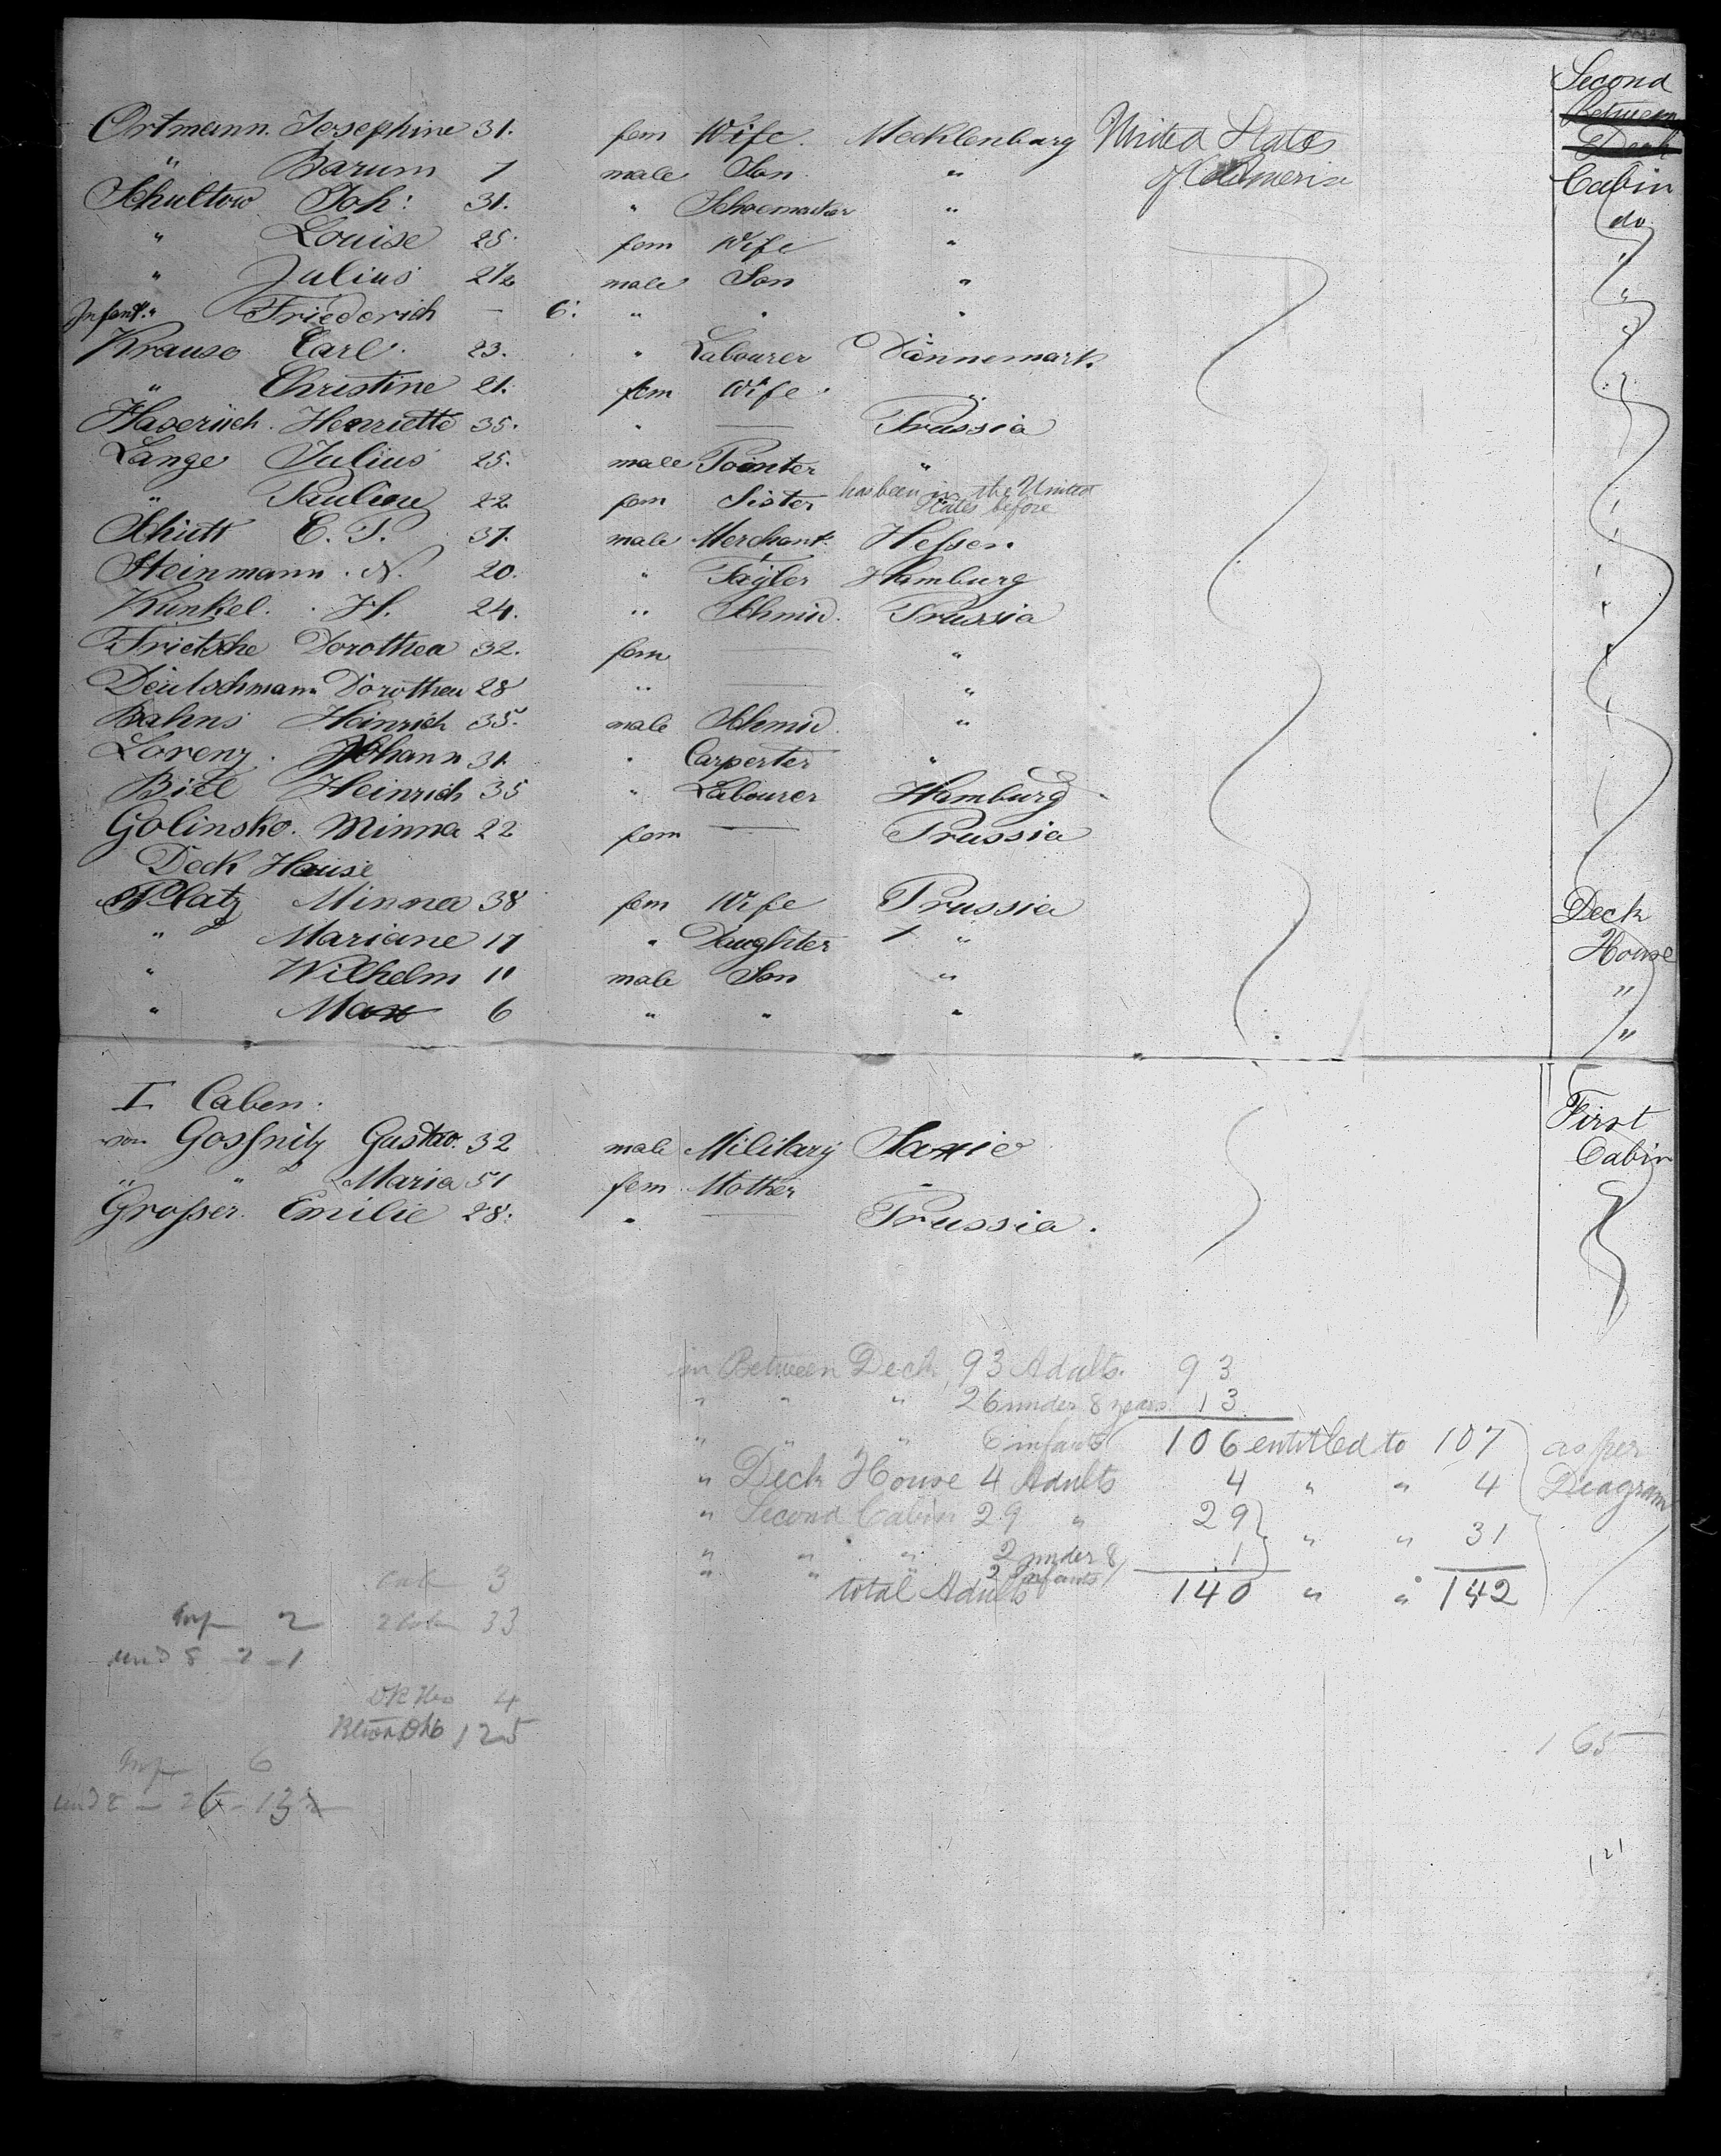 Second
Ortmann. Josephine 31. fem Wife. Mecklenburg United States Between
" Barum 7 male Son. " of America Deck
Schultow Joh: 31. " Schoemacker " Cabin
" Louise 25. fem Wife " do
" Julius 2 1/2 male Son " "
Infant. " Friederich - 6. " " " "
Krause Carl. 23. " Labourer Dännemark. "
" Christine 21. fem Wife. " "
Henriette 35. " — Prussia
Lange Julius 25. male Pointer "
" Pauline 22 fem Sister has been in the United States before
Schütt C. T. 31. male Merchant. Hessen.
Steinmann. N. 20. " Tayler Hamburg
Kunkel. H. 24. " Schmid. Prussia
Frietsche Dorothea 32. fem — "
Deutschmann Dorothea 28 " — "
Bahns Heinrich 35. male Schmid. "
Lorenz. Johann 31. " Carpenter "
Heinrich 35 " Labourer Hamburg
Golinsko. Minna 22 fem — Prussia
Deck House
Platz Minna 38 fem Wife Prussia Deck
" Mariane 17 " Daughter " House
" Wilhelm 11 male Son " "
" Max 6 " " " "
I Caben.
von Gossnitz Gustav. 32 male Military Saxie First
" " Maria 51 fem Mother " Cabin
Grosser. Emilie 28. " — Prussia.
in Between Deck, 93 Adults. 93
" " " 26 under 8 years 13
" " " 6 infants 106 entitled to 107 as per
" Deck House 4 Adults 4 " " 4 Diagram
" Second Cabin 29 " 29 " " 31
" " " 2 under 8 1
" " " 2 infants
total Adults 140 " " 142
3
Inf 2 2 Cabn 33
und 8 2 - 1
4
125
Inf 6
und 8 - 26 - 13
165
121